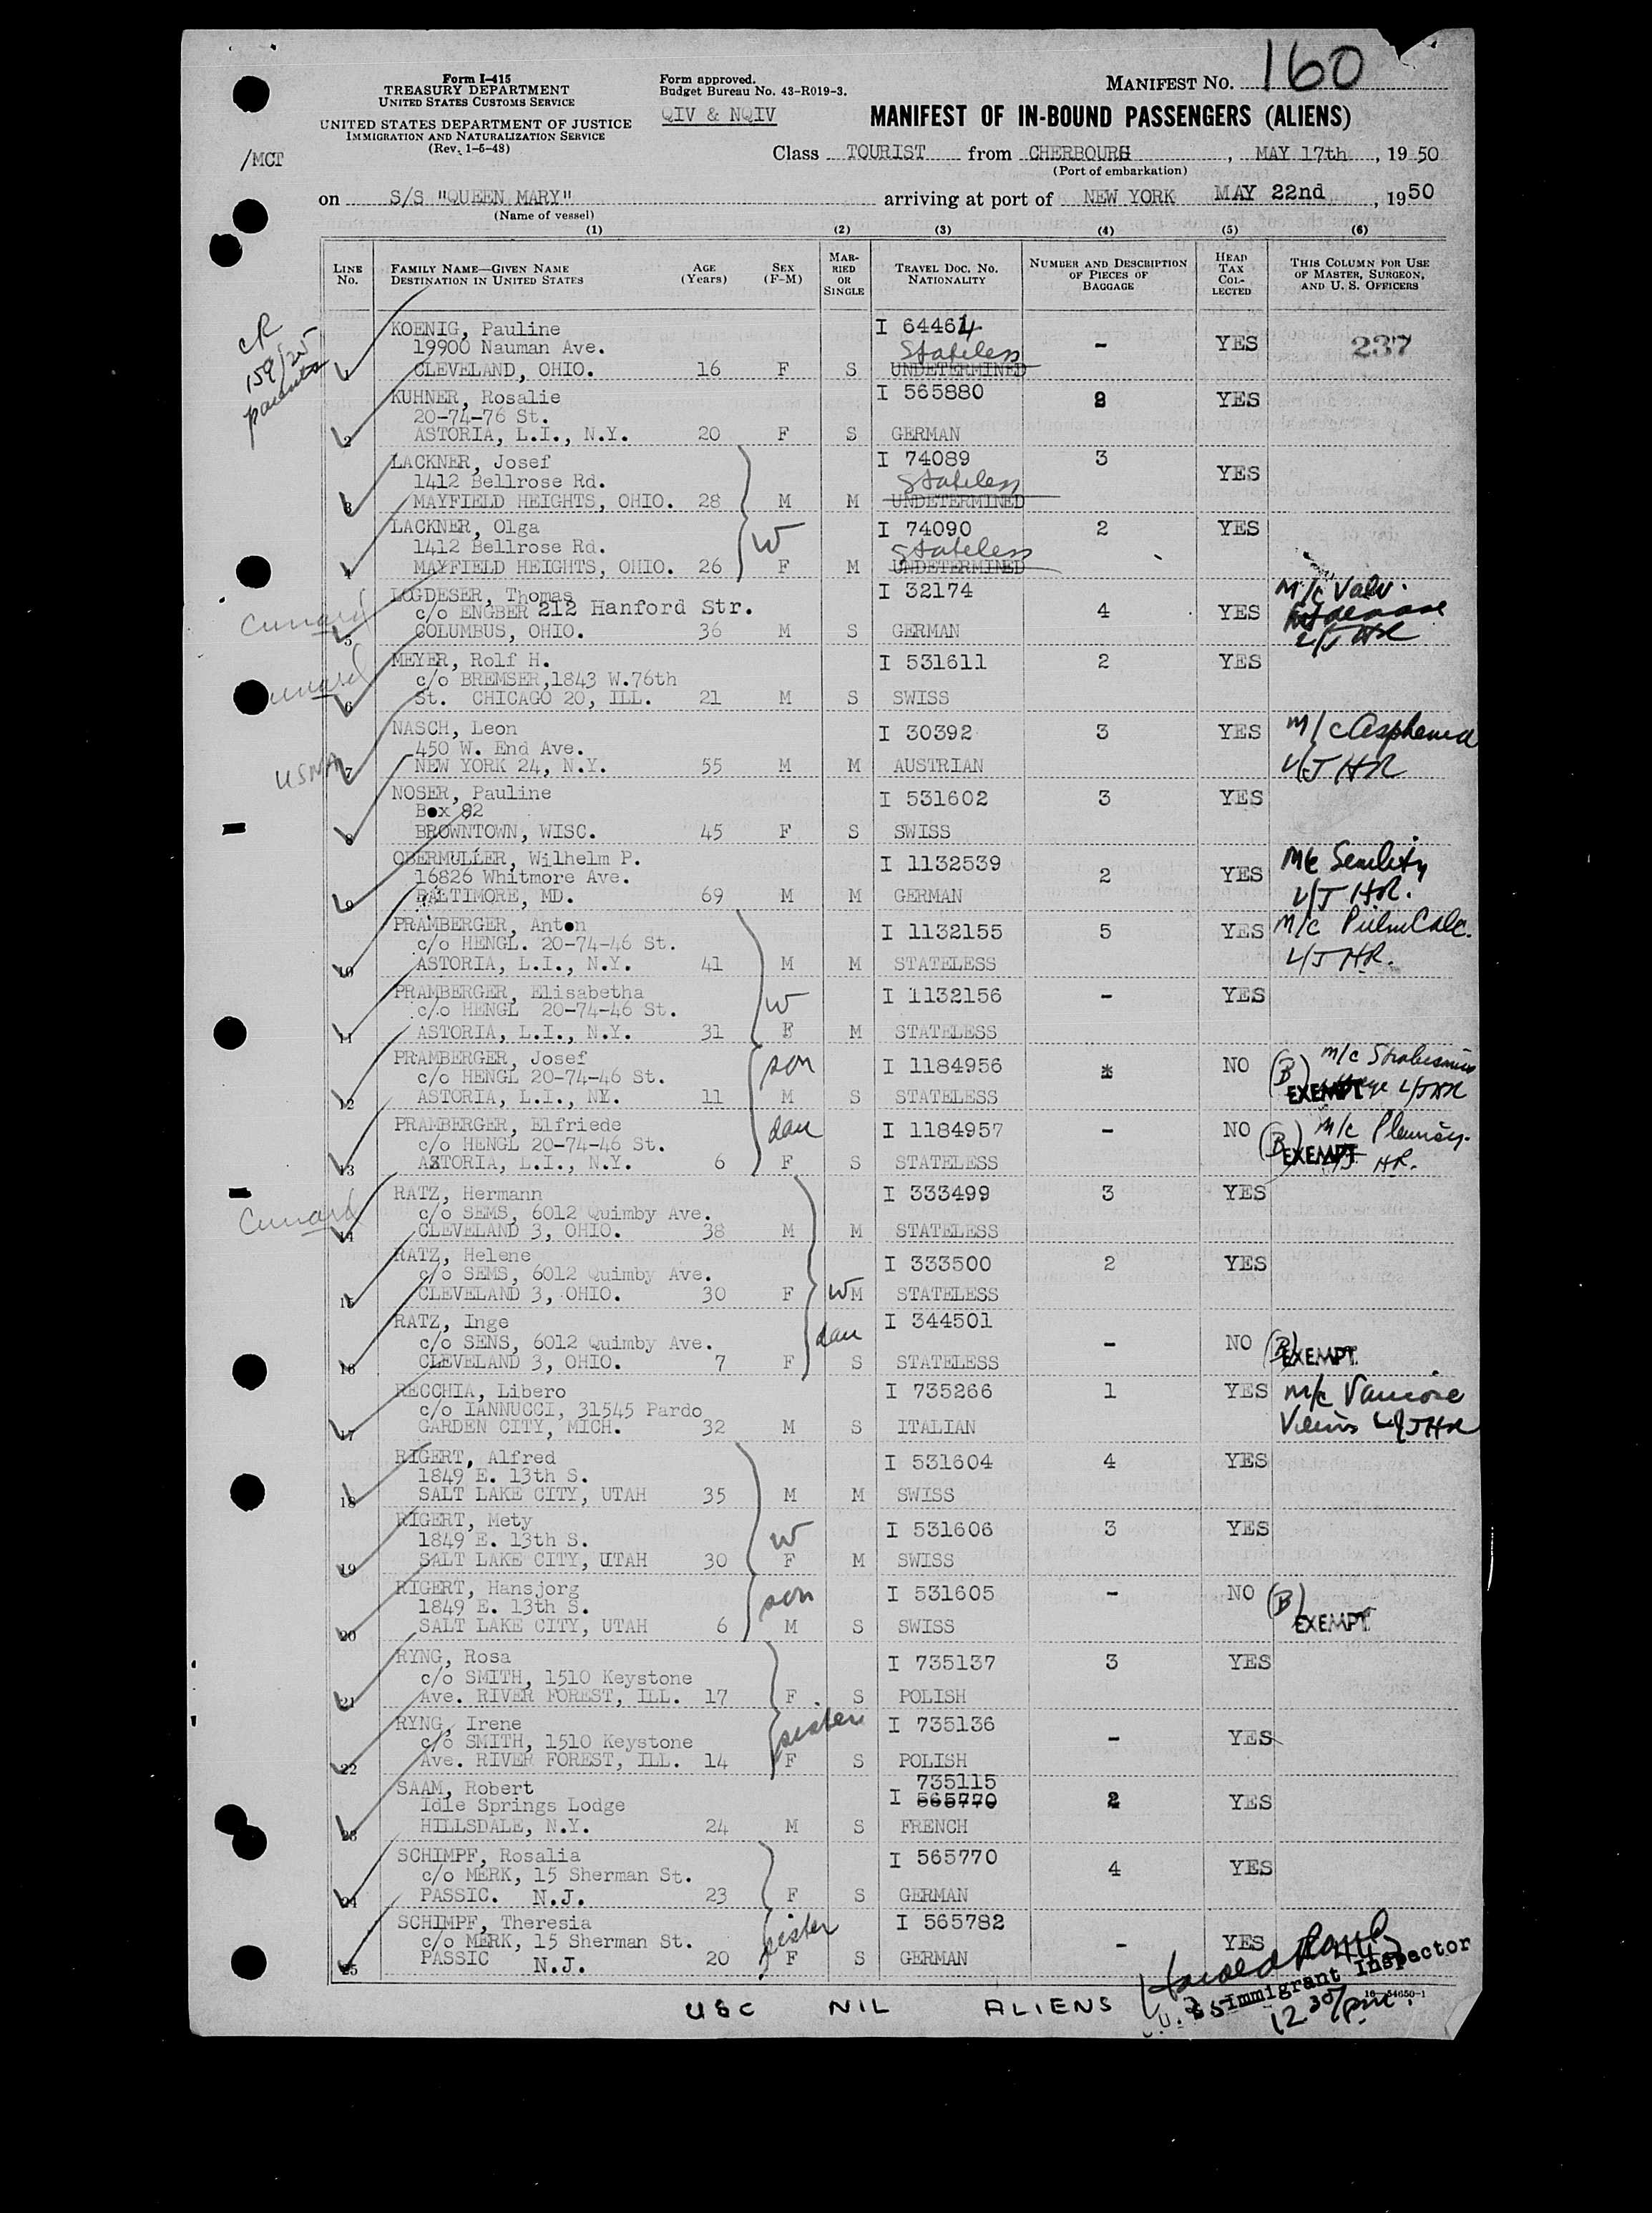 160
Form I-415
TREASURY DEPARTMENT
UNITED STATES CUSTOMS SERVICE
UNITED STATES DEPARTMENT OF JUSTICE
IMMIGRATION AND NATURALIZATION SERVICE
(Rev. 1-5-48)
/MCT
Form approved.
Budget Bureau No. 43-R019-3.
QIV & NQIV
MANIFEST NO.
MANIFEST OF IN-BOUND PASSENGERS (ALIENS)
Class TOURIST from CHERBOURG, MAY 17th, 1950
(Port of embarkation)
on S/S "QUEEN MARY" arriving at port of NEW YORK MAY 22nd, 1950
(Name of vessel)
(1) (2) (3) (4) (5) (6)
LINE NO. FAMILY NAME—GIVEN NAME DESTINATION IN UNITED STATES AGE (Years) SEX (F-M) MARRIED OR SINGLE TRAVEL DOC. NO. NATIONALITY NUMBER AND DESCRIPTION OF PIECES OF BAGGAGE HEAD TAX COLLECTED THIS COLUMN FOR USE OF MASTER, SURGEON, AND U. S. OFFICERS
CR
159/25
parents
KOENIG, Pauline I 64464
19900 Nauman Ave. Stateless - YES 237
CLEVELAND, OHIO. 16 F S UNDETERMINED
KUHNER, Rosalie I 565880
20-74-76 St. YES
2 ASTORIA, L.I., N.Y. 20 F S GERMAN
LACKNER, Josef I 74089 3
1412 Bellrose Rd. Stateless YES
3 MAYFIELD HEIGHTS, OHIO. 28 M M UNDETERMINED
LACKNER, Olga I 74090 2 YES
1412 Bellrose Rd. W Stateless
4 MAYFIELD HEIGHTS, OHIO. 26 F M UNDETERMINED
LOGDESER, Thomas I 32174 M/c Valv.
Cunard c/o ENGBER 212 Hanford Str. 4 YES
5 COLUMBUS, OHIO. 36 M S GERMAN L/J HR
MEYER, Rolf H. I 531611 2 YES
Cunard c/o BREMSER,1843 W.76th
6 St. CHICAGO 20, ILL. 21 M S SWISS
NASCH, Leon I 30392 3 YES M/c
450 W. End Ave.
USNA 7 NEW YORK 24, N.Y. 55 M M AUSTRIAN L/J HR
NOSER, Pauline I 531602 3 YES
Box 82
8 BROWNTOWN, WISC. 45 F S SWISS
OBERMULLER, Wilhelm P. I 1132539 M/c Senility
16826 Whitmore Ave. 2 YES
9 BALTIMORE, MD. 69 M M GERMAN L/J HR.
PRAMBERGER, Anton I 1132155 5 YES M/c Pulm Calc.
c/o HENGL. 20-74-46 St.
10 ASTORIA, L.I., N.Y. 41 M M STATELESS L/J HR.
PRAMBERGER, Elisabetha I 1132156 - YES
c/o HENGL 20-74-46 St. W
11 ASTORIA, L.I., N.Y. 31 F M STATELESS
PRAMBERGER, Josef I 1184956 NO (B) m/c Strabismus
c/o HENGL 20-74-46 St. son
12 ASTORIA, L.I., NY. 11 M S STATELESS EXEMPT eye L/J HR
PRAMBERGER, Elfriede I 1184957 - NO (B) m/c Pleurisy.
c/o HENGL 20-74-46 St. dau
13 ASTORIA, L.I., N.Y. 6 F S STATELESS EXEMPT L/J HR.
RATZ, Hermann I 333499 3 YES
Cunard c/o SEMS, 6012 Quimby Ave.
14 CLEVELAND 3, OHIO. 38 M M STATELESS
RATZ, Helene I 333500 2 YES
c/o SEMS, 6012 Quimby Ave.
15 CLEVELAND 3, OHIO. 30 F W M STATELESS
RATZ, Inge I 344501
c/o SENS, 6012 Quimby Ave. dau - NO (B) EXEMPT.
16 CLEVELAND 3, OHIO. 7 F S STATELESS
RECCHIA, Libero I 735266 1 YES M/c Varicose
c/o IANNUCCI, 31545 Pardo
17 GARDEN CITY, MICH. 32 M S ITALIAN Veins L/J HR
RIGERT, Alfred I 531604 4 YES
1849 E. 13th S.
18 SALT LAKE CITY, UTAH 35 M M SWISS
RIGERT, Mety I 531606 3 YES
1849 E. 13th S. W
19 SALT LAKE CITY, UTAH 30 F M SWISS
RIGERT, Hansjorg I 531605 - NO (B)
1849 E. 13th S. son
20 SALT LAKE CITY, UTAH 6 M S SWISS EXEMPT.
RYNG, Rosa I 735137 3 YES
c/o SMITH, 1510 Keystone
21 Ave. RIVER FOREST, ILL. 17 F S POLISH
RYNG, Irene I 735136 - YES
c/o SMITH, 1510 Keystone sister
22 Ave. RIVER FOREST, ILL. 14 F S POLISH
SAAM, Robert 735115
Idle Springs Lodge I 565770 2 YES
23 HILLSDALE, N.Y. 24 M S FRENCH
SCHIMPF, Rosalia I 565770
c/o MERK, 15 Sherman St. 4 YES
24 PASSIC. N.J. 23 F S GERMAN
SCHIMPF, Theresia I 565782
c/o MERK, 15 Sherman St. sister - YES
25 PASSIC N.J. 20 F S GERMAN
USC NIL ALIENS
U. S. Immigrant Inspector
12 30/pm.
16-54650-1